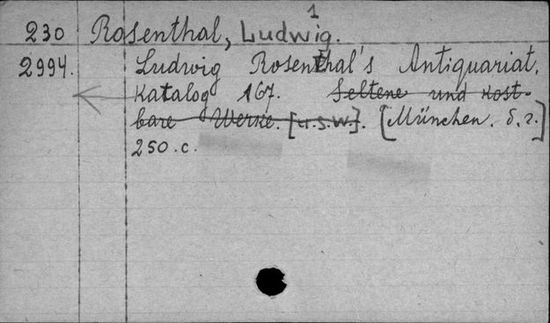 1
230 Rosenthal, Ludwig.
2994. Ludwig Rosenthal's Antiquariat.
Katalog 167. Seltene und kost-
bare Werke. [u.s.w.]. [München. б.г.]
250.с.